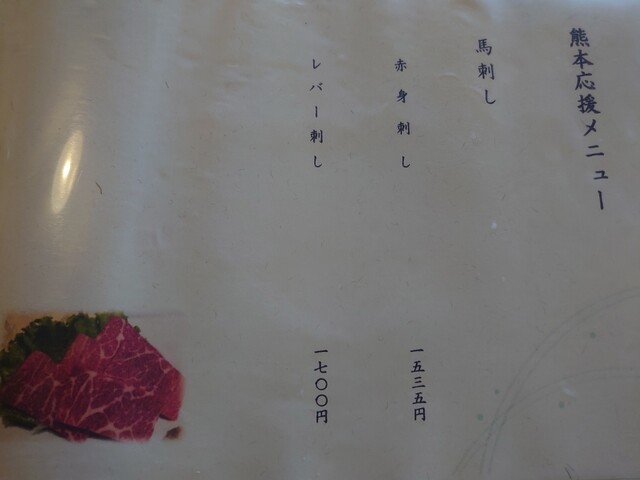 熊本応援メニュー
馬刺し
赤身刺し 一五三五円
レバー刺し 一七〇〇円